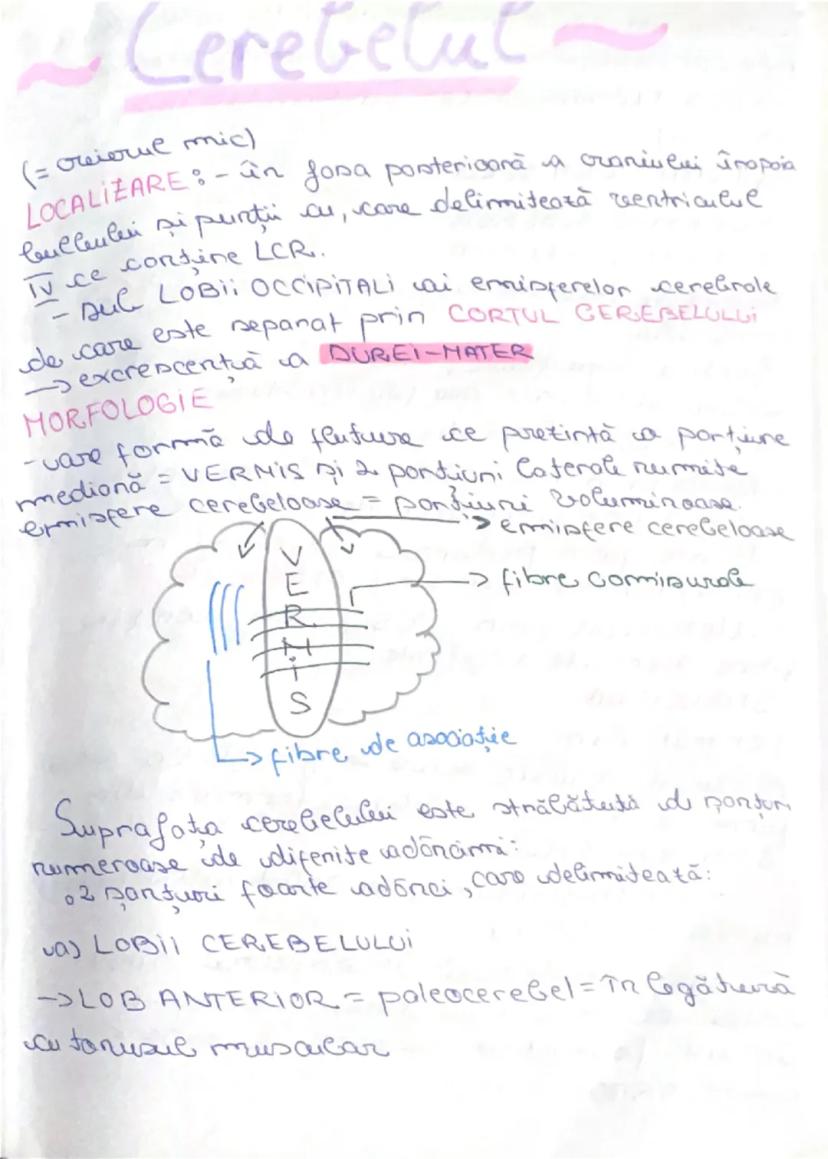 Cerebelul
(= creierul mic)
LOCALIZARE: - în fosa posterioară a craniului înapoia
bulbului și punții cu, care delimitează ventriculul
IV ce conține LCR.
- sub LOBII OCCIPITALI ai emisferelor cerebrale
de care este separat prin CORTUL CEREBELULUI
-> excrescență a DUREI-MATER
MORFOLOGIE
- are formă de fluture ce prezintă o porțiune
mediană = VERMIS și 2 porțiuni laterale numite
emisfere cerebeloase = porțiuni voluminoase.
-> emisfere cerebeloase
VERMIS
-> fibre comisurale
-> fibre de asociație
Suprafața cerebelului este străbătută d șanțuri
numeroase de diferite adâncimi:
o 2 șanțuri foarte adânci, care delimitează:
a) LOBII CEREBELULUI
-> LOB ANTERIOR = paleocerebel = în legătură
cu tonusul muscular